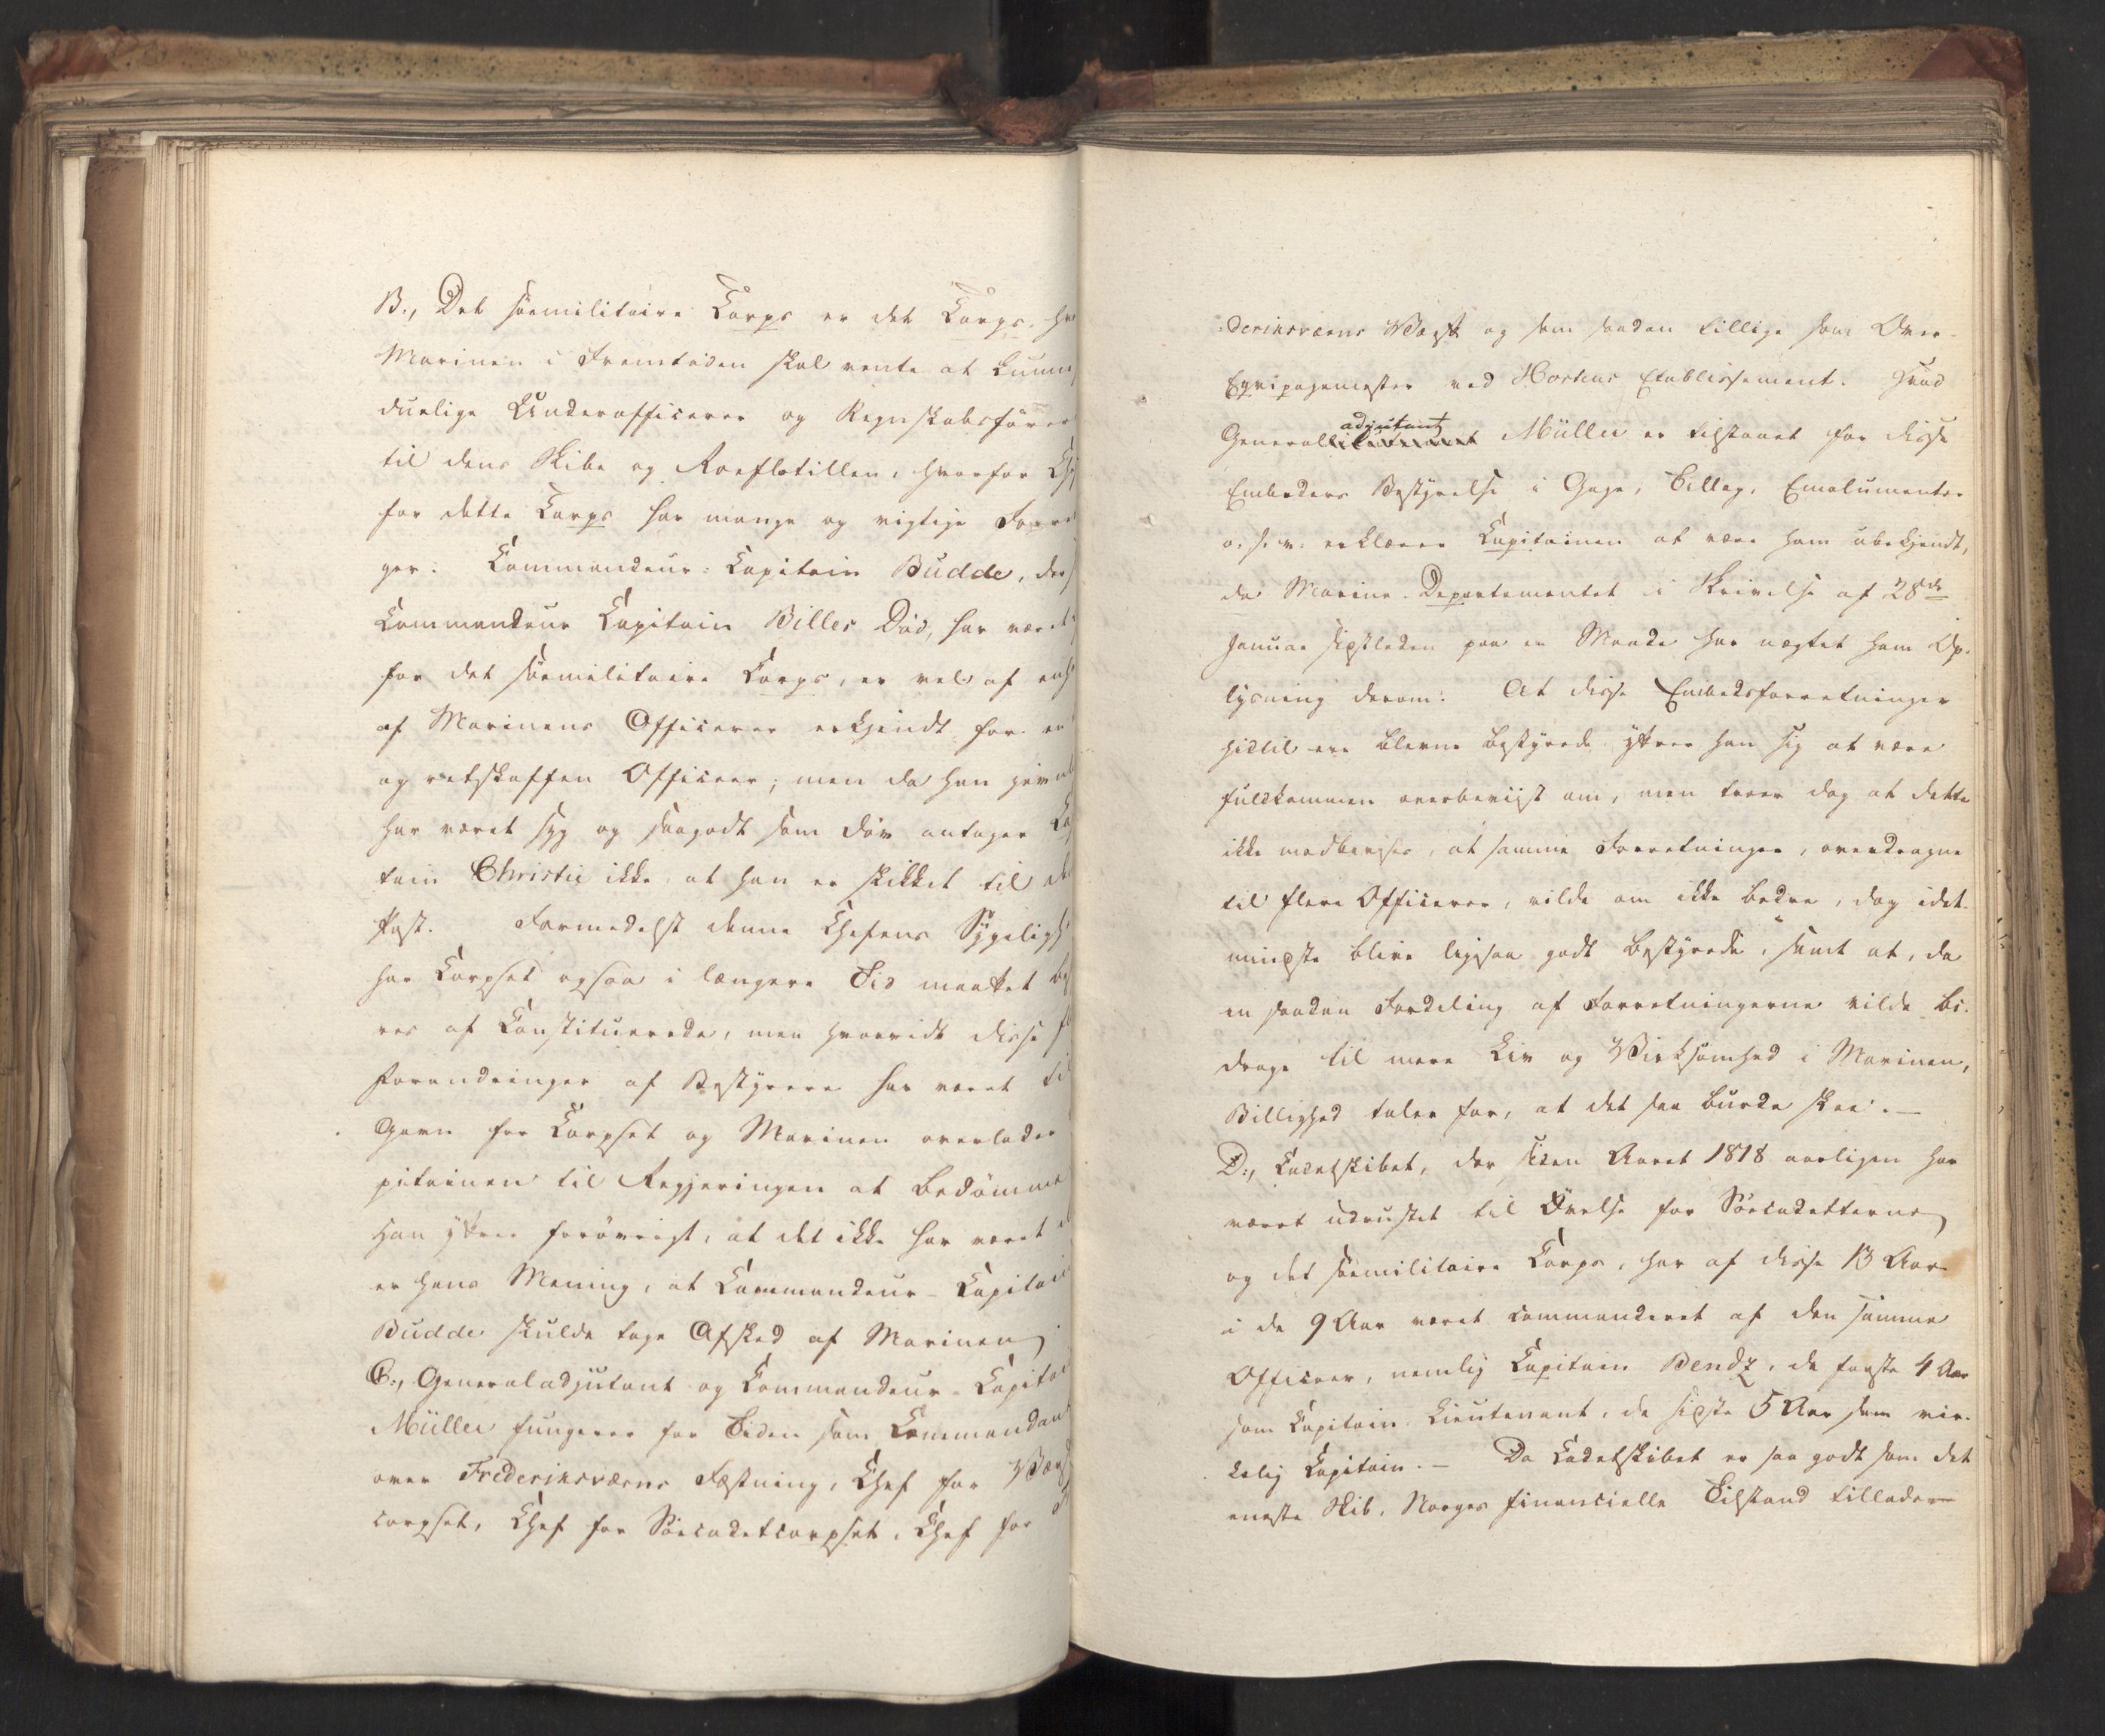 B., Det söemilitaire Corps er det Corps,
Marinen i Fremtiden skal vente at kunne
duelige Underofficerer og Regnskabsförer
til dens Skibe og Roeflotillen, hvorfor
for dette Corps har mange og vigtige
ger. Commandeur-Capitain Budde, der
Commandeur Capitain Billes Död, har været
for det söemilitaire Corps, er vel af
af Marinens Officerer erkjendt for en
og retskaffen Officeer; men da han
har været syg og saagodt som döv antager
tain Christie ikke at han er skikket til
Post. Formedelst denne Chefens
har Corpset ogsaa i længere Tid maattet
res af Constituerede, men hvorvidt disse
Forandringer af Bestyrere har været til
Gavn for Corpset og Marinen overlader
pitainen til Regjeringen at bedömme
Han yttrer forövrigt, at det ikke har været
er hans Mening, at Commandeur-Capitain
Budde skulde tage Afsked af Marinen
C., Generaladjutant og Commandeur-Capitai
Müller fungerer for Tiden som Commandant
over Frederiksværns Fæstning, Chef for
corpset, Chef for Söecadetcorpset, Chef for
deriksværns Værft og som saadan tillige som Over-
Eqvipagemester ved Hortens Etablissement. Hvad
adjutant
General Müller er tilstaaet for disse
Embeders Bestyrelse i Gage, Tillæg, Emolumenter
o. s. v. erklærer Capitainen at være ham ubekjendt,
da Marine-Departementet i Skrivelse af 28de
Januar sidstleden paa en Maade har nægtet ham Op-
lysning derom. At disse Embedsforretninger
hidtil ere blevne bestyrede yttrer han sig at være
fuldkommen overbeviist om, men troer dog at dette
ikke modbevises, at samme Forretninger, overdragne
til flere Officerer, vilde om ikke bedre, dog idet-
mindste blive ligesaa godt bestyrede, samt at, da
en saadan Fordeling af Forretningerne vilde bi-
drage til mere Liv og Virksomhed i Marinen,
Billighed taler for, at det saa burde skee. —
D., Cadetskibet, der siden Aaret 1818 aarligen har
været udrustet til Övelse for Söecadetterne
og det söemilitaire Corps, har af disse 13 Aar
i de 9 Aar været commanderet af den samme
Officeer, nemlig Capitain Bendz, de første 4 Aar
som Capitain Lieutenant, de sidste 5 Aar som vir-
kelig Capitain. — Da Cadetskibet er saa godt som det
eneste Skib, Norges financielle Tilstand tillader